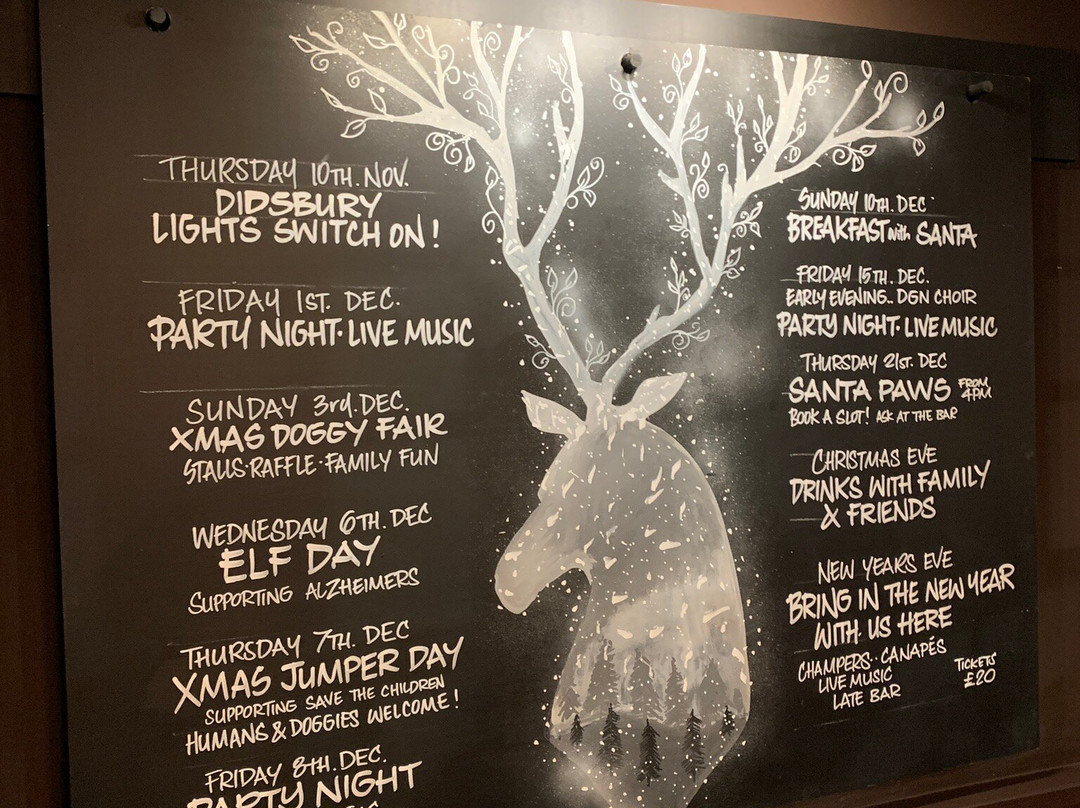 THURSDAY 10TH. NOV.
DIDSBURY
LIGHTS SWITCH ON!
FRIDAY 1ST. DEC.
PARTY NIGHT · LIVE MUSIC
SUNDAY 3rd. DEC.
XMAS DOGGY FAIR
STALLS · RAFFLE · FAMILY FUN
WEDNESDAY 6TH. DEC
ELF DAY
SUPPORTING ALZHEIMERS
THURSDAY 7TH. DEC
XMAS JUMPER DAY
SUPPORTING SAVE THE CHILDREN
HUMANS & DOGGIES WELCOME!
FRIDAY 8TH. DEC.
PARTY NIGHT
SUNDAY 10TH. DEC.
BREAKFAST with SANTA
FRIDAY 15TH. DEC.
EARLY EVENING.. DGN CHOIR
PARTY NIGHT · LIVE MUSIC
THURSDAY 21ST. DEC
SANTA PAWS FROM 4PM
BOOK A SLOT! ASK AT THE BAR
CHRISTMAS EVE
DRINKS WITH FAMILY
X FRIENDS
NEW YEARS EVE
BRING IN THE NEW YEAR
WITH US HERE
CHAMPERS.. CANAPÉS
LIVE MUSIC
LATE BAR
TICKETS
£20